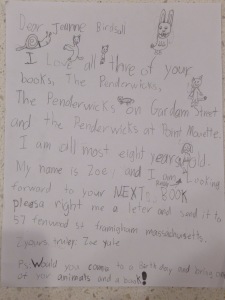 Dear Jeanne Birdsall
I Love all thre of your
books, The Penderwicks,
The Penderwicks on Gardam Street
and the Penderwicks at Point Mouette.
I am all most eight years old.
My name is Zoe, and I am Looking
forward to your NEXT BOOK
pleasa right me a leter and send it to
57 fenwood st framigham massachusetts.
yours truley Zoe Yule
P.S. Would you come to a birthday and bring one
of your animals and a book!